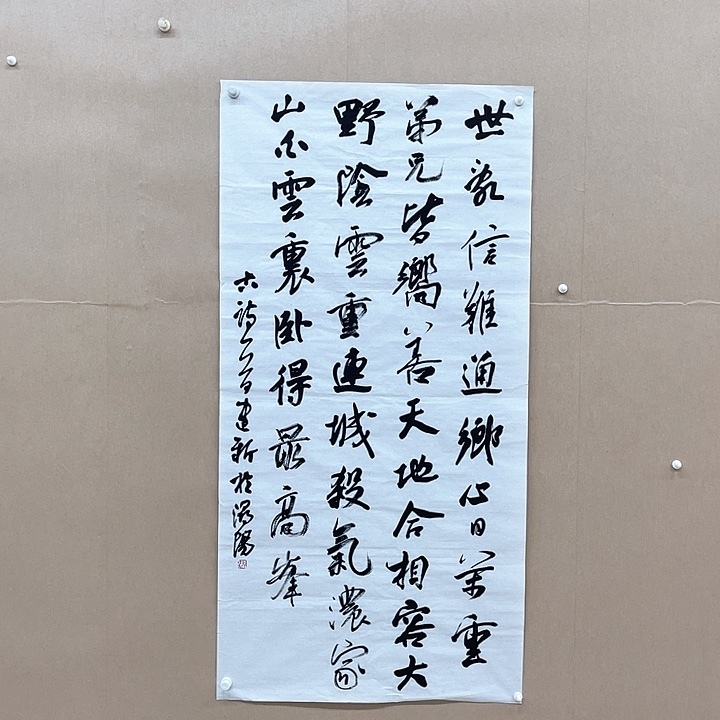 世亂信難通鄉心日萬重
弟兄皆嚮善天地合相容大
野陰雲重連城殺氣濃家
山白雲裏臥得最高峯
古詩一首建新於陽